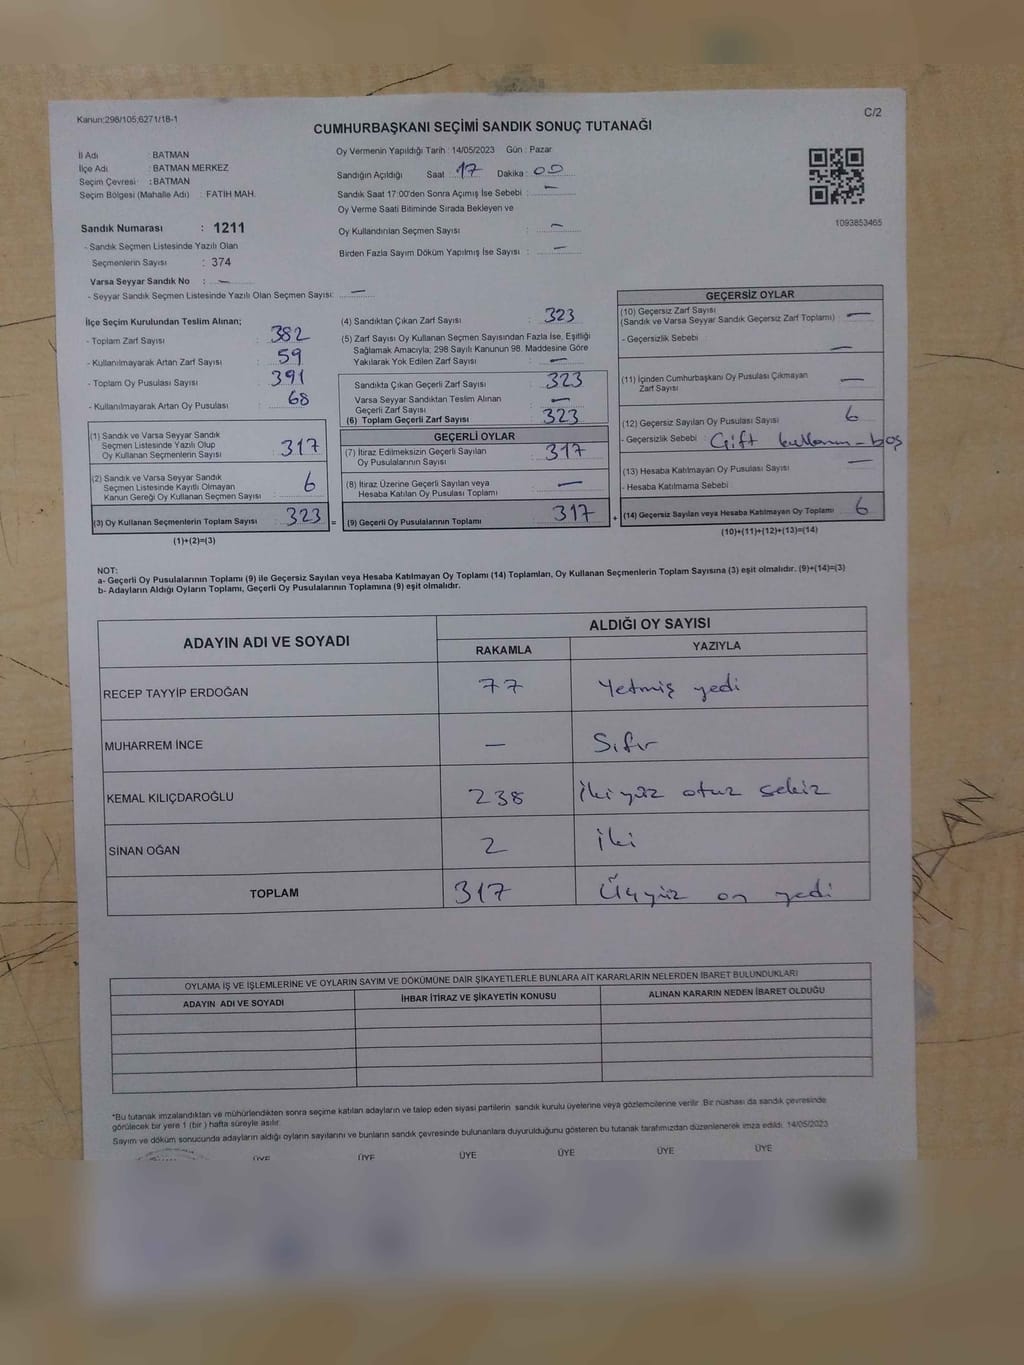 Kanun:298/105;6271/18-1
C/2
CUMHURBAŞKANI SEÇİMİ SANDIK SONUÇ TUTANAĞI
İl Adı : BATMAN
İlçe Adı : BATMAN MERKEZ
Seçim Çevresi : BATMAN
Seçim Bölgesi (Mahalle Adı) : FATİH MAH.
Sandık Numarası : 1211
- Sandık Seçmen Listesinde Yazılı Olan
Seçmenlerin Sayısı : 374
Varsa Seyyar Sandık No : —
- Seyyar Sandık Seçmen Listesinde Yazılı Olan Seçmen Sayısı: —
Oy Vermenin Yapıldığı Tarih : 14/05/2023 Gün : Pazar
Sandığın Açıldığı Saat : 17 Dakika : 00
Sandık Saat 17:00'den Sonra Açımış İse Sebebi : —
Oy Verme Saati Bitiminde Sırada Bekleyen ve
Oy Kullandırılan Seçmen Sayısı : —
Birden Fazla Sayım Döküm Yapılmış İse Sayısı : —
1093853465
İlçe Seçim Kurulundan Teslim Alınan;
- Toplam Zarf Sayısı : 382
- Kullanılmayarak Artan Zarf Sayısı : 59
- Toplam Oy Pusulası Sayısı : 391
- Kullanılmayarak Artan Oy Pusulası : 68
(1) Sandık ve Varsa Seyyar Sandık
Seçmen Listesinde Yazılı Olup
Oy Kullanan Seçmenlerin Sayısı : 317
(2) Sandık ve Varsa Seyyar Sandık
Seçmen Listesinde Kayıtlı Olmayan
Kanun Gereği Oy Kullanan Seçmen Sayısı : 6
(3) Oy Kullanan Seçmenlerin Toplam Sayısı 323 =
(1)+(2)=(3)
(4) Sandıktan Çıkan Zarf Sayısı : 323
(5) Zarf Sayısı Oy Kullanan Seçmen Sayısından Fazla İse, Eşitliği
Sağlamak Amacıyla; 298 Sayılı Kanunun 98. Maddesine Göre
Yakılarak Yok Edilen Zarf Sayısı : —
Sandıkta Çıkan Geçerli Zarf Sayısı : 323
Varsa Seyyar Sandıktan Teslim Alınan
Geçerli Zarf Sayısı : —
(6) Toplam Geçerli Zarf Sayısı : 323
GEÇERLİ OYLAR
(7) İtiraz Edilmeksizin Geçerli Sayılan
Oy Pusulalarının Sayısı : 317
(8) İtiraz Üzerine Geçerli Sayılan veya
Hesaba Katılan Oy Pusulası Toplamı : —
(9) Geçerli Oy Pusulalarının Toplamı 317 +
GEÇERSİZ OYLAR
(10) Geçersiz Zarf Sayısı
(Sandık ve Varsa Seyyar Sandık Geçersiz Zarf Toplamı) : —
- Geçersizlik Sebebi : —
(11) İçinden Cumhurbaşkanı Oy Pusulası Çıkmayan
Zarf Sayısı : —
(12) Geçersiz Sayılan Oy Pusulası Sayısı : 6
- Geçersizlik Sebebi : Çift kullanım-boş
(13) Hesaba Katılmayan Oy Pusulası Sayısı : —
- Hesaba Katılmama Sebebi :
(14) Geçersiz Sayılan veya Hesaba Katılmayan Oy Toplamı 6
(10)+(11)+(12)+(13)=(14)
NOT:
a- Geçerli Oy Pusulalarının Toplamı (9) ile Geçersiz Sayılan veya Hesaba Katılmayan Oy Toplamı (14) Toplamları, Oy Kullanan Seçmenlerin Toplam Sayısına (3) eşit olmalıdır. (9)+(14)=(3)
b- Adayların Aldığı Oyların Toplamı, Geçerli Oy Pusulalarının Toplamına (9) eşit olmalıdır.
ADAYIN ADI VE SOYADI
ALDIĞI OY SAYISI
RAKAMLA YAZIYLA
RECEP TAYYİP ERDOĞAN 77 Yetmiş yedi
MUHARREM İNCE — Sıfır
KEMAL KILIÇDAROĞLU 238 İkiyüz otuz sekiz
SİNAN OĞAN 2 İki
TOPLAM 317 Üçyüz on yedi
OYLAMA İŞ VE İŞLEMLERİNE VE OYLARIN SAYIM VE DÖKÜMÜNE DAİR ŞİKAYETLERLE BUNLARA AİT KARARLARIN NELERDEN İBARET BULUNDUKLARI
ADAYIN ADI VE SOYADI İHBAR İTİRAZ VE ŞİKAYETİN KONUSU ALINAN KARARIN NEDEN İBARET OLDUĞU
*Bu tutanak imzalandıktan ve mühürlendikten sonra seçime katılan adayların ve talep eden siyasi partilerin sandık kurulu üyelerine veya gözlemcilerine verilir. Bir nüshası da sandık çevresinde
görülecek bir yere 1 (bir) hafta süreyle asılır.
Sayım ve döküm sonucunda adayların aldığı oyların sayılarını ve bunların sandık çevresinde bulunanlara duyurulduğunu gösteren bu tutanak tarafımızdan düzenlenerek imza edildi. 14/05/2023
ÜYE ÜYE ÜYE ÜYE ÜYE ÜYE